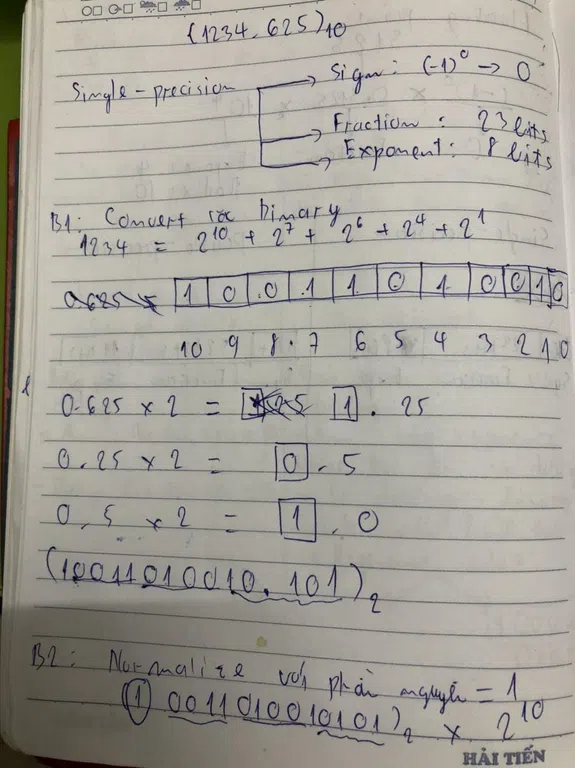 (1234.625)10
Single-precision
Sign: (-1)^0 → 0
Fraction: 23 bits
Exponent: 8 bits
B1: Convert to binary
1234 = 2^10 + 2^7 + 2^6 + 2^4 + 2^1
1 0 0 1 1 0 1 0 0 1 0
10 9 8 7 6 5 4 3 2 1 0
0.625 × 2 = 1 . 25
0.25 × 2 = 0 . 5
0.5 × 2 = 1 . 0
(10011010010.101)2
B2: Normalize với phần nguyên = 1
1 0011010010101)2 × 2^10
HẢI TIẾN